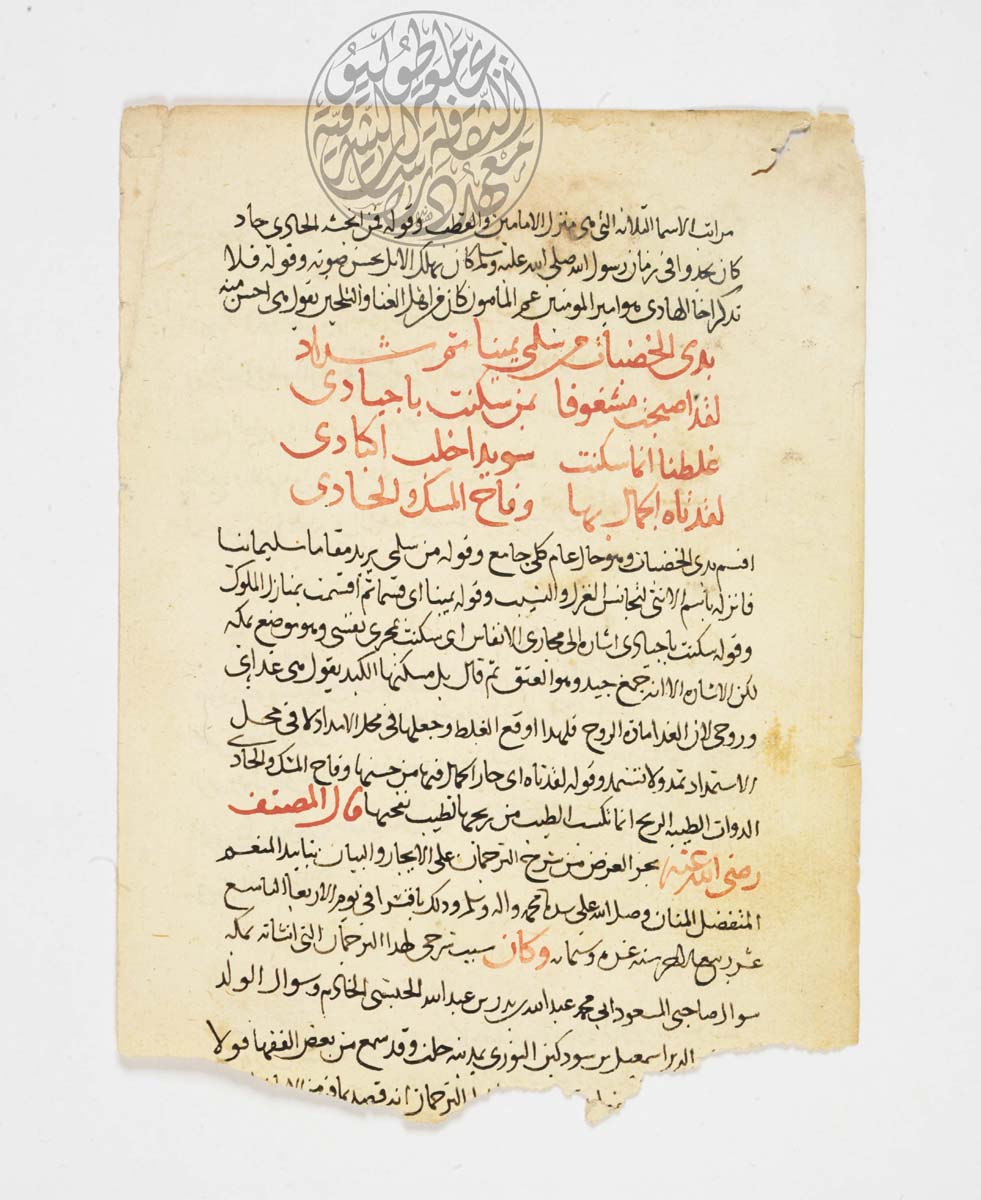 مراتب الاسما الثلاثة التي هي منزل الامامين والقطب وقوله ثمن انخثه الحادي حاد
كان يحدوا في زمان رسول الله صلى الله عليه وسلم كان يهلك الابل بحسن صوته وقوله فلا
تذكر اخا الهادي هو امير المومنين عم المامون كان من اهل الغنا والتلحين يقول هي احسن منه
بذي الخضبات من سلمى يمينا ثم شداد
لقد اصبحت مشغوفا بمن سكنت باجيادي
غلطنا انما سكنت سويدا خلب اكبادي
لقد تاه الجمال بها وفاح المسك والحادي
اقسم بذي الخضبات وهو حال عام كلي جامع وقوله من سلمى يريد مقاما سليمانيا
فانزله باسم الانثى لتجانس الغزل والنسيب وقوله يمينا اي قسما ثم اقسمت بمنازل الملوك
وقوله سكنت باجيادي اشارة الى مجاري الانفاس اي سكنت بمجرى نفسي وهو موضع بمكة
لكن الاشارة الا انه جمع جيد وهو العنق ثم قال بل مسكنها الكبد يقول هي غذاي
وروحي لان الغذا مادة الروح فلهذا اوقع الغلط وجعلها في محل الامداد لا في محل
الاستمداد تمد ولا تستمد وقوله لقد تاه اي حار الجمال فيها من حسنها وفاح المسك والحادي
الذوات الطيبه الريح انما تكتسب الطيب من ريحها لطيب نفحتها قال المصنف
رضي الله عنه نجز الغرض من شرح الترجمان على الايجاز والبيان بتاييد المنعم
المتفضل المنان وصلى الله على سيدنا محمد واله وسلم وذلك باقشرا في يوم الاربعا التاسع
عشر ربيع الاخر سنة عشرة وستماية وكان سبب شرحي لهذا الترجمان التي انشاته بمكة
سوال صاحبي المسعود ابي محمد عبد الله بن بدر بن عبد الله الحبشي الخادم وسوال الولد
الدين اسمعيل بن سودكين النوري بمدينة حلب وقد سمع من بعض الفقها قولا
الترجمان انه قصد بما في من